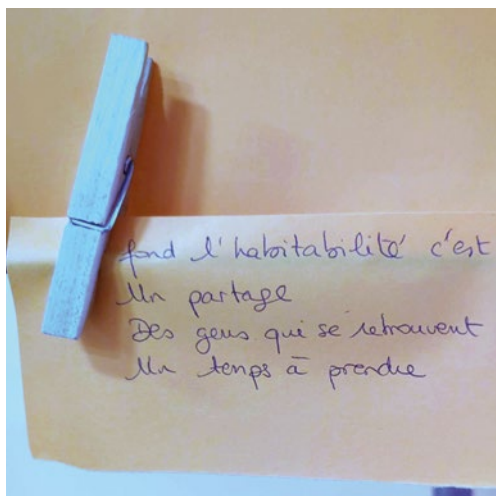 fond l'habitabilité c'est
Un partage
Des gens qui se retrouvent
Un temps à prendre